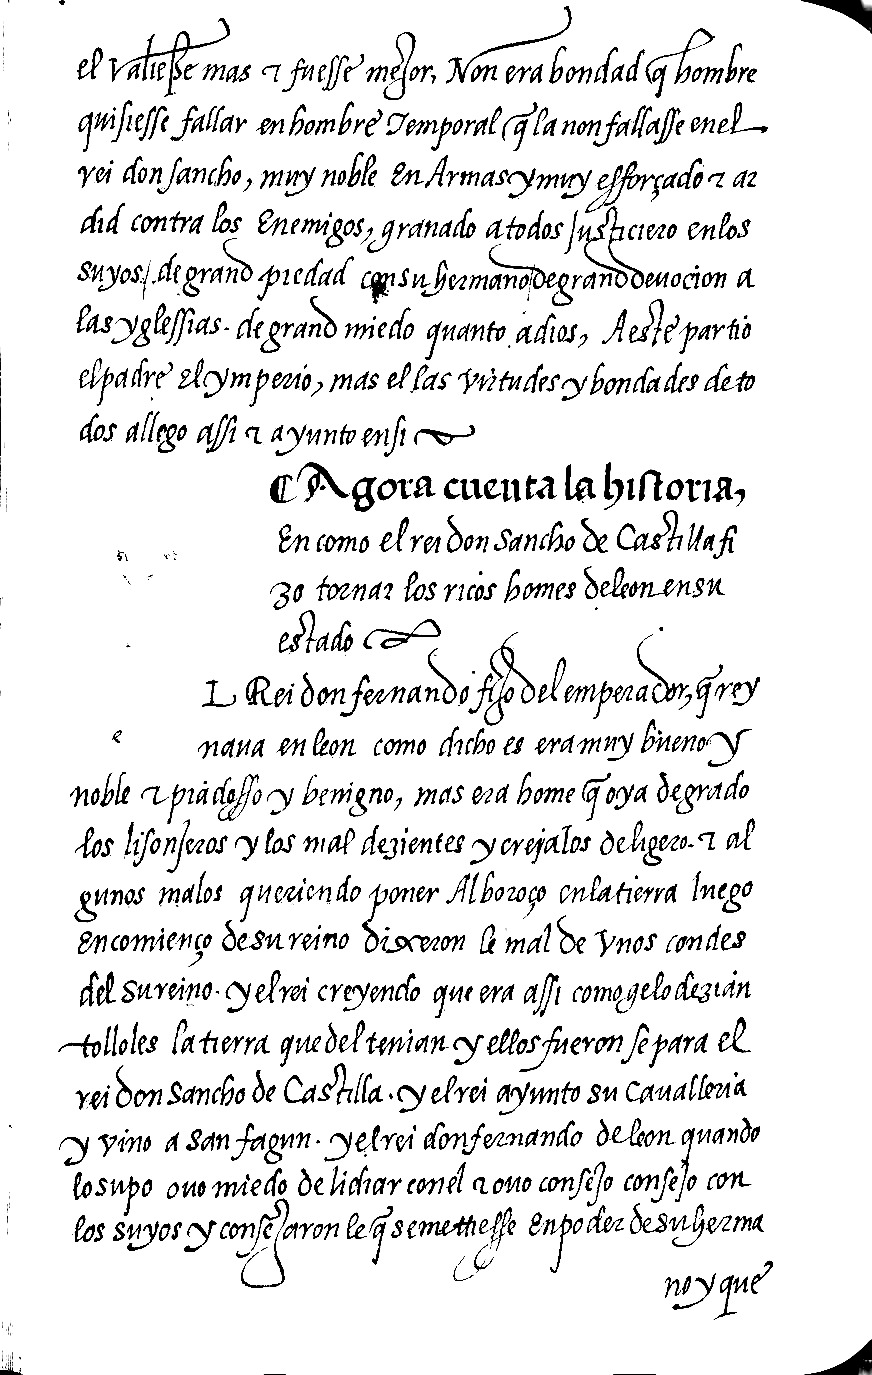 el valiesse mas τ fuesse mejor, Non era bondad q̃ hombre
quisiesse fallar en hombre Temporal q̃ la non fallasse en el
rei don sancho, muy noble En Armas y muy esforçado τ ar
did contra los Enemigos, granado a todos justiciero en los
suyos, de grand piedad con su hermano de grand deuocion a
las yglessias. de grand miedo quanto a dios, A este partio
el padre El ymperio, mas el las virtudes y bondades de to
dos allego assi τ ayunto en si
¶ Agora cuenta la historia,
En como el rei don Sancho de Castilla fi
zo tornar los ricos homes de leon en su
estado
L Rei don fernando fijo del emperador, q̃ rey
e naua en leon como dicho es era muy bueno y
noble τ piadosso y benigno, mas era home q̃ oya de grado
los lisonjeros y los mal dezientes y crejalos de ligero. τ al
gunos malos queriendo poner Alboroço en la tierra luego
En comienço de su reino dixeron le mal de vnos condes
del su reino. y el rei creyendo que era assi como gelo dezian
tolloles la tierra que del tenian y ellos fueron se para el
rei don Sancho de Castilla. y el rei ayunto su Caualleria
y vino a san fagun. y el rei don fernando de leon quando
lo supo ouo miedo de lidiar con el τ ouo consejo consejo con
los suyos y consejaron le q̃ se metiesse En poder de su herma
no y que